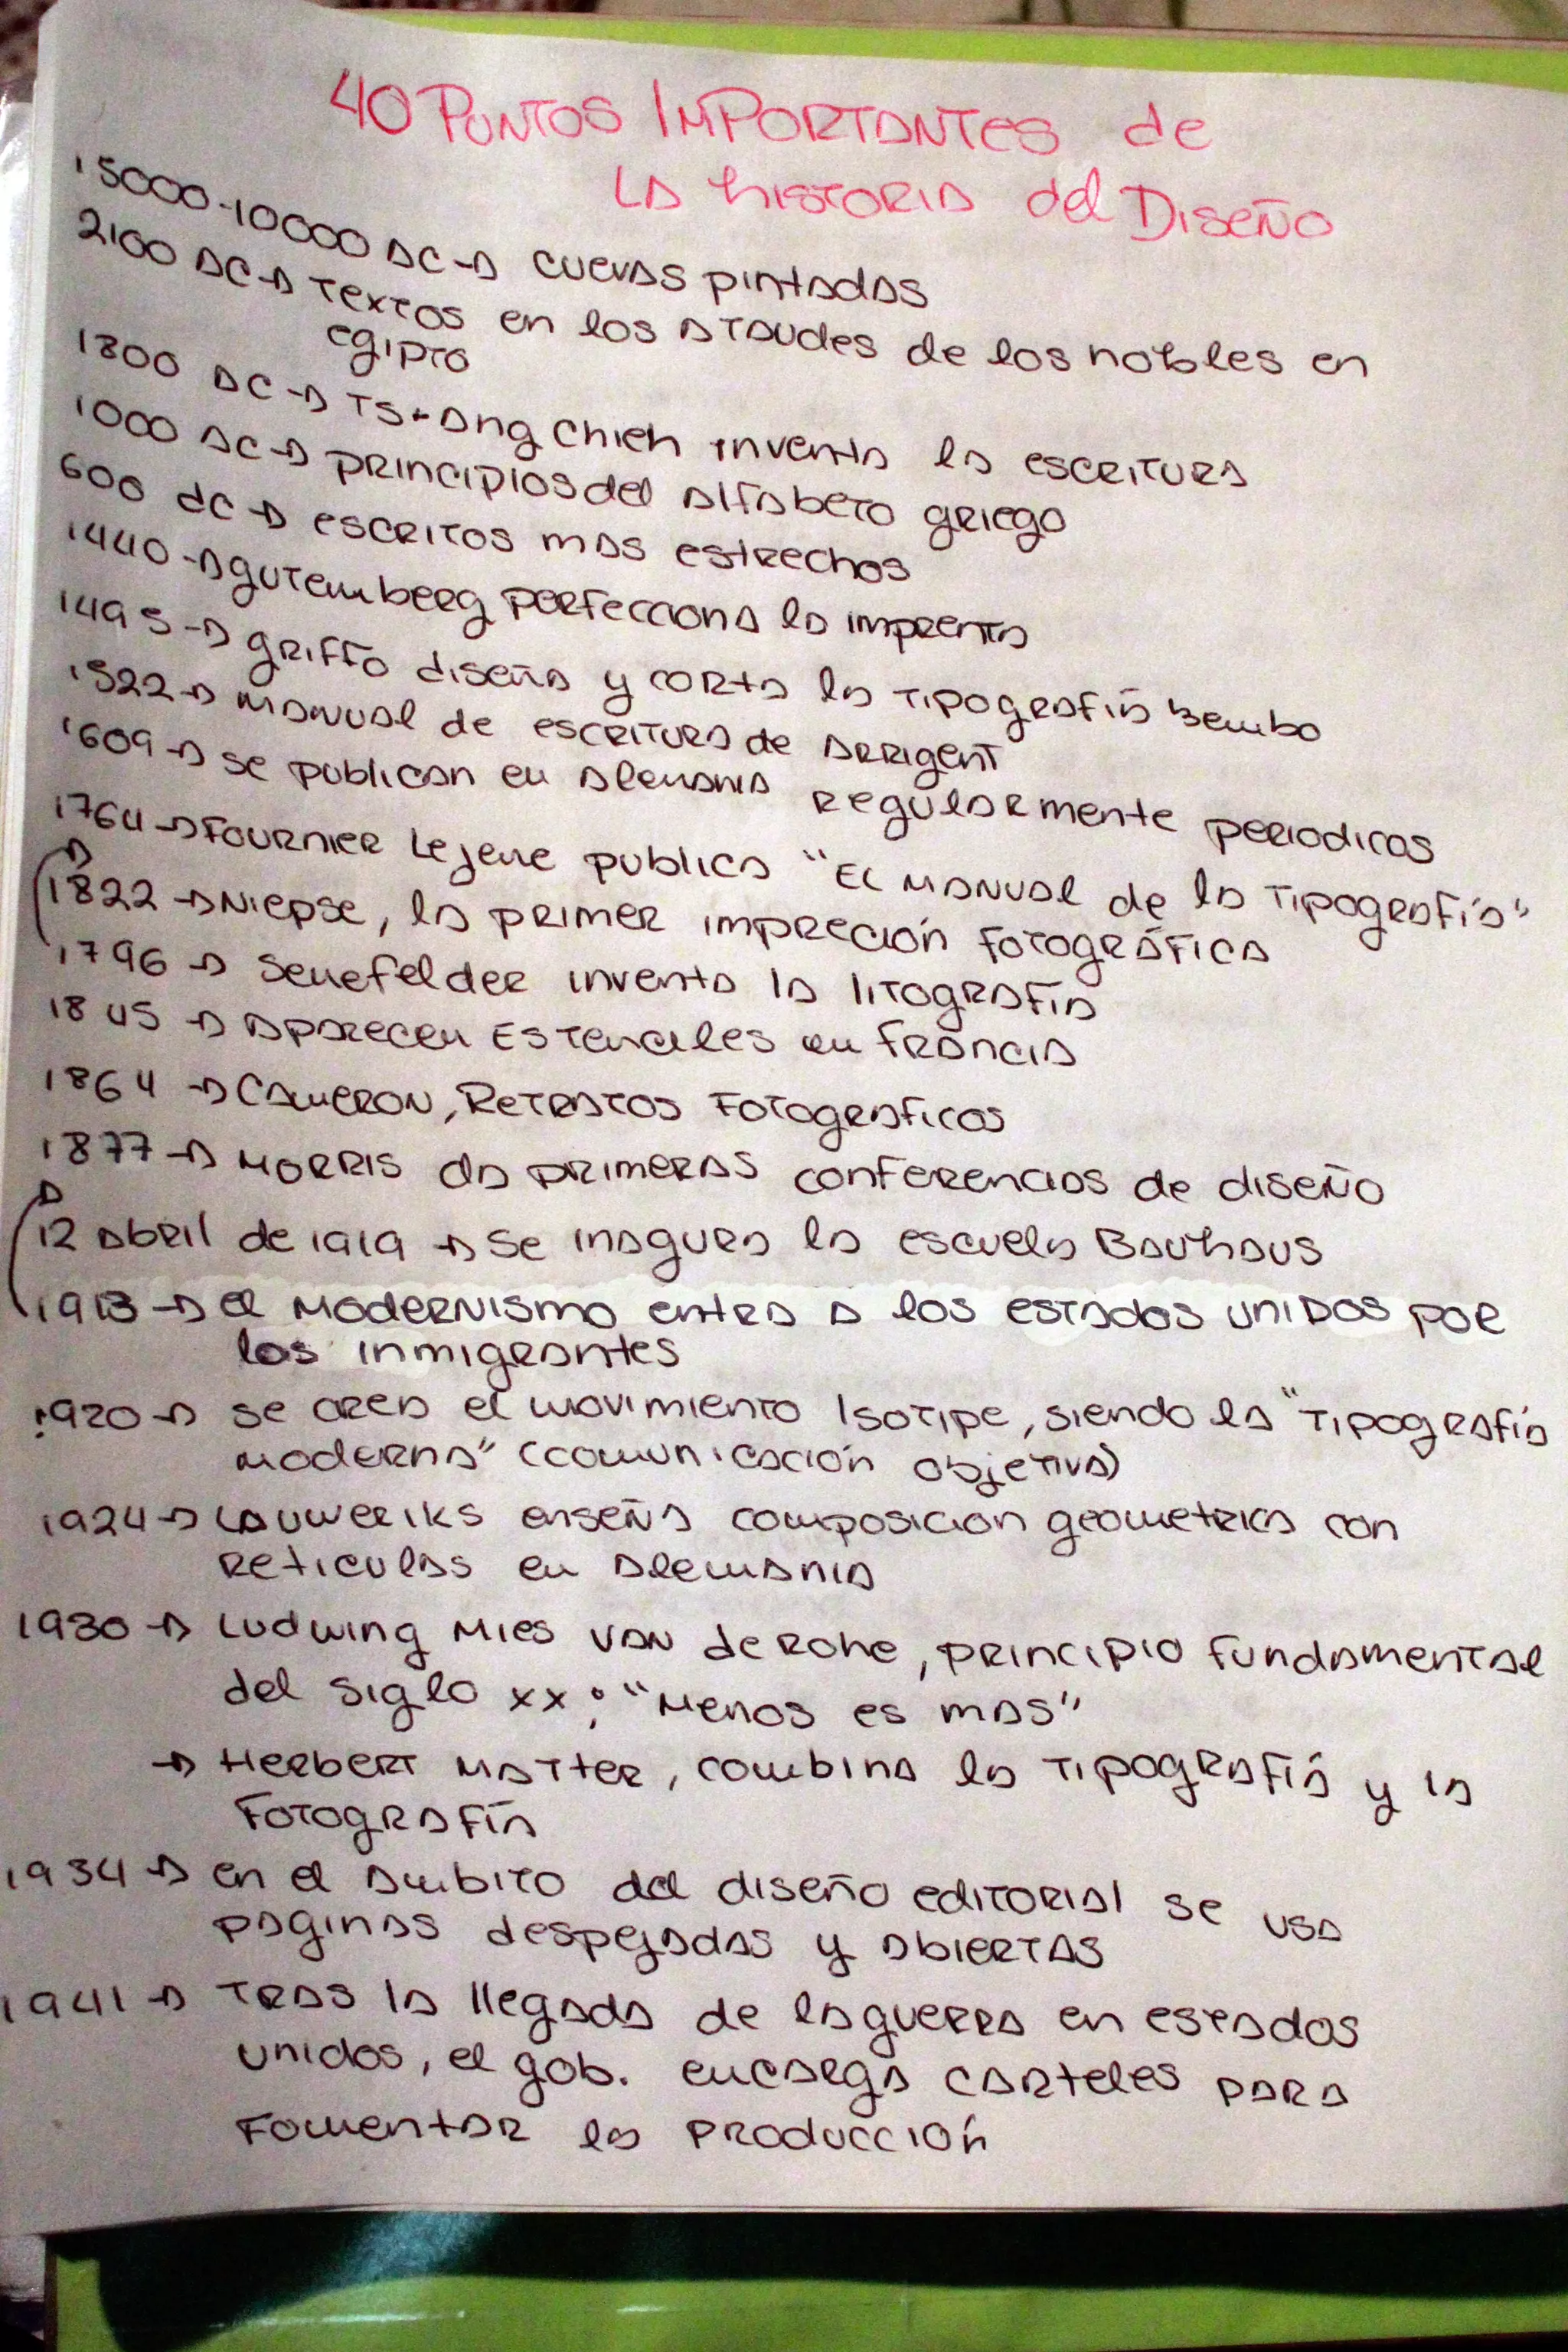 40 PUNTOS IMPORTANTES de
LA hISTORIA del DISEÑO
15000-10000 AC → CUEVAS PINTADAS
2100 AC → TEXTOS en los ATAUDES de los nobles en
egipto
1800 AC → TS-Ang Chieh inventa la escritura
1000 AC → principios del alfabeto griego
600 dC → escritos mas estrechos
1440 → gutemberg perfecciona la imprenta
1495 → griffo diseña y corta la tipografía Bembo
1522 → Manual de escritura de Arrigent
1609 → se publican en Alemania regularmente periodicos
1764 → Fournier Lejene publica "El Manual de la Tipografía"
1822 → Niepse, la primer impreción fotográfica
1796 → Senefelder inventa la litografía
1845 → Aparecen Estenciles en Francia
1864 → Cameron, Retratos Fotograficos
1877 → Morris da primeras conferencias de diseño
12 Abril de 1919 → Se inagura la escuela Bauhaus
1913 → el Modernismo entra a los estados unidos por
los inmigrantes
1920 → se crea el movimiento Isotipe, siendo la "Tipografía
moderna" (comunicación objetiva)
1924 → Lauweriks enseña composicion geometrica con
reticulas en Alemania
1930 → Ludwing Mies van de rohe, principio fundamental
del siglo xx: "Menos es mas"
→ Herbert Matter, combina la tipografía y la
fotografía
1934 → en el ambito del diseño editorial se usa
paginas despejadas y abiertas
1941 → Tras la llegada de la guerra en estados
unidos, el gob. encarga carteles para
fomentar la producción